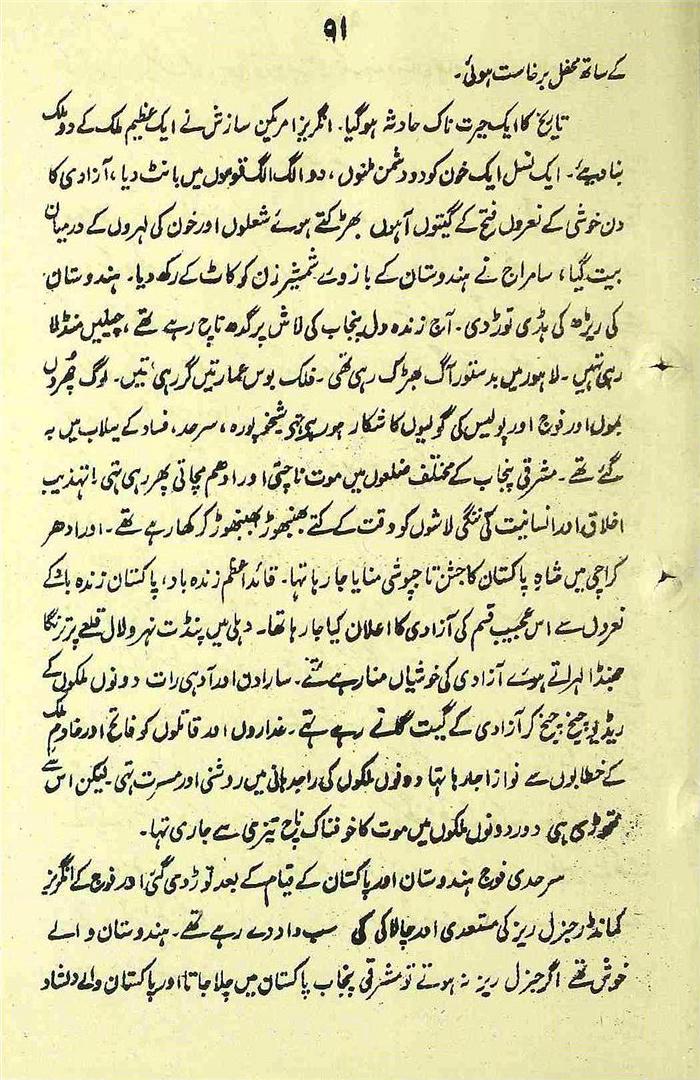 ۹۱
کے ساتھ محفل برخاست ہوئی۔
تاریخ کا ایک حیرت ناک حادثہ ہو گیا۔ انگریز امریکن سازش نے ایک عظیم ملک کے دو ملک
بنا دیئے۔ ایک نسل ایک خون کو دو دشمن ملکوں، دو الگ الگ قوموں میں بانٹ دیا، آزادی کا
دن خوشی کے نعروں فتح کے گیتوں آہوں بھڑکتے ہوئے شعلوں اور خون کی لہروں کے درمیان
بیت گیا، سامراج نے ہندوستان کے بازوے شمشیر زن کو کاٹ کے رکھ دیا۔ ہندوستان
کی ریڑھ کی ہڈی توڑ دی۔ آج زندہ دل پنجاب کی لاش پر گدھ ناچ رہے تھے، چیلیں منڈلا
رہی تہیں۔ لاہور میں بدستور آگ بھڑک رہی تھی۔ فلک بوس عمارتیں گر رہی تیں۔ لوگ چُھروں
بموں اور فوج اور پولیس کی گولیوں کا شکار ہو رہے تہے شیخوپورہ، سرحد، فساد کے سیلاب میں بہ
گئے تھے۔ مشرقی پنجاب کے مختلف ضلعوں میں موت ناچتی اور ادھم مچاتی پھر رہی تہی! تہذیب
اخلاق اور انسانیت کی ننگی لاشوں کو وقت کے کتے بھنبھوڑ بھنبھوڑ کر کھا رہے تھے۔ اور ادھر
کراچی میں شاہِ پاکستان کا جشن تاجپوشی منایا جا رہا تہا۔ قائد اعظم زندہ باد، پاکستان زندہ باد کے
نعروں سے اس عجیب قسم کی آزادی کا اعلان کیا جا رہا تھا۔ دہلی میں پنڈت نہرو لال قلعے پر ترنگا
جھنڈا لہراتے ہوے آزادی کی خوشیاں منا رہے تہے۔ سارا دن اور آدہی رات دونوں ملکوں کے
ریڈیو چیخ چیخ کر آزادی کے گیت گاتے رہے تہے۔ غداروں اور قاتلوں کو فاتح اور خادم ملک
کے خطابوں سے نوازا جا رہا تہا دونوں ملکوں کی راجدہانی میں روشنی اور مسرت تہی لیکن اس سے
تھوڑی ہی دور دونوں ملکوں میں موت کا خوفناک ناچ تیزی سے جاری تہا۔
سرحدی فوج ہندوستان اور پاکستان کے قیام کے بعد توڑ دی گئی اور فوج کے انگریز
کمانڈر جنرل ریز کی مستعدی اور چالاکی کی سب داد دے رہے تھے۔ ہندوستان والے
خوش تھے اگر جنرل ریز نہ ہوتے تو مشرقی پنجاب پاکستان میں چلا جاتا اور پاکستان والے دلشاد